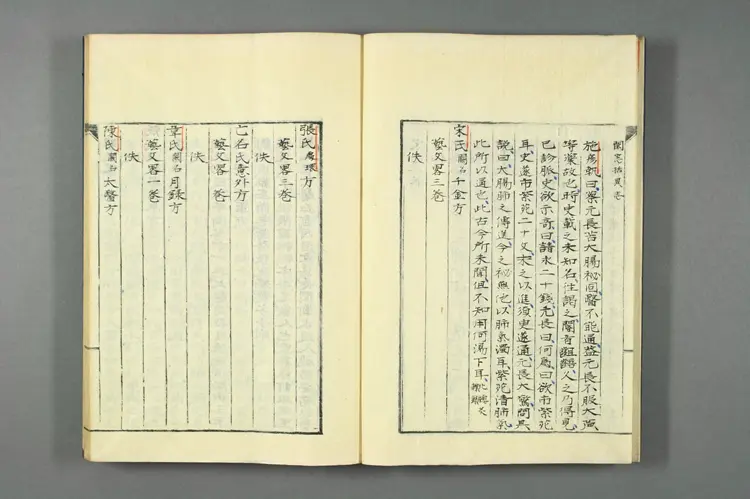 施彥執曰蔡元長苦大腸秘固醫不能通蓋元長不服大黃
等藥故也時史載之未知名往謁之閽者齟齬久之乃得見
已診脈史欲示奇曰請求二十錢元長曰何為曰欲市紫菀
耳史遂市紫菀二十文末之以進須臾遂通元長大驚問其
說曰大腸肺之傳送今之秘無他以肺氣濁耳紫菀清肺氣
此所以通也此古今所未聞但不知用何湯下耳
宋氏闕名千金方
藝文畧三卷
佚
張氏處環方
藝文畧三卷
佚
亡名氏意外方
藝文畧 卷
佚
章氏闕名月錄方
藝文畧一卷
佚
陳氏闕名太醫方